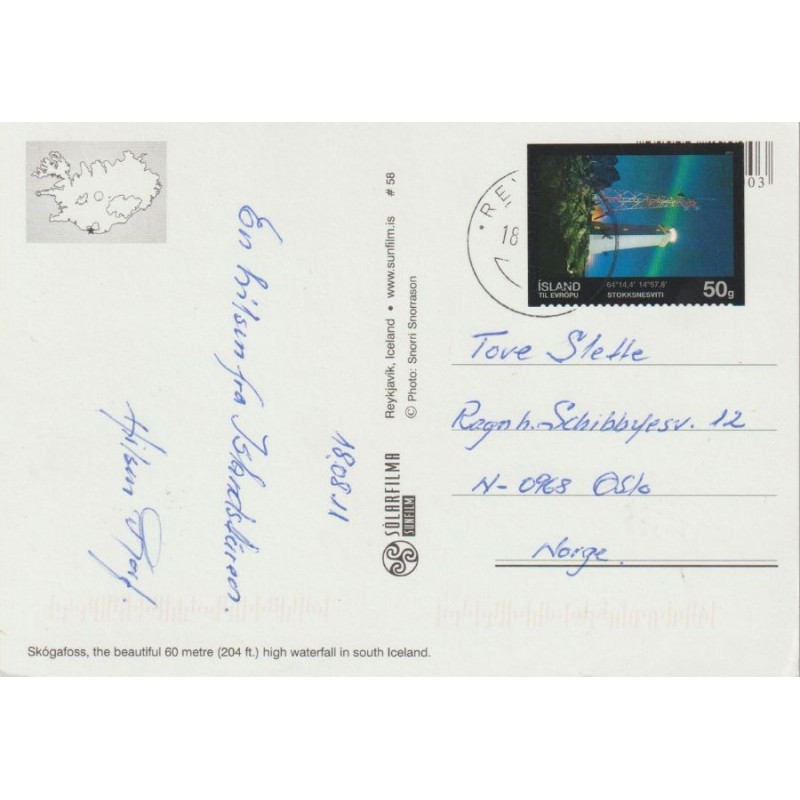 En hilsen fra Islandsturen
18.08.11
Hilsen
Reykjavík, Iceland • www.sunfilm.is # 58
© Photo: Snorri Snorrason
SÓLARFILMA
SUNFILM
RE
18
03
ÍSLAND
TIL EVRÓPU
64°14,4' 14°57,8'
STOKKSNESVITI
50g
Tove Slette
Ragnh. Schibbyesv. 12
N-0968 Oslo
Norge.
Skógafoss, the beautiful 60 metre (204 ft.) high waterfall in south Iceland.